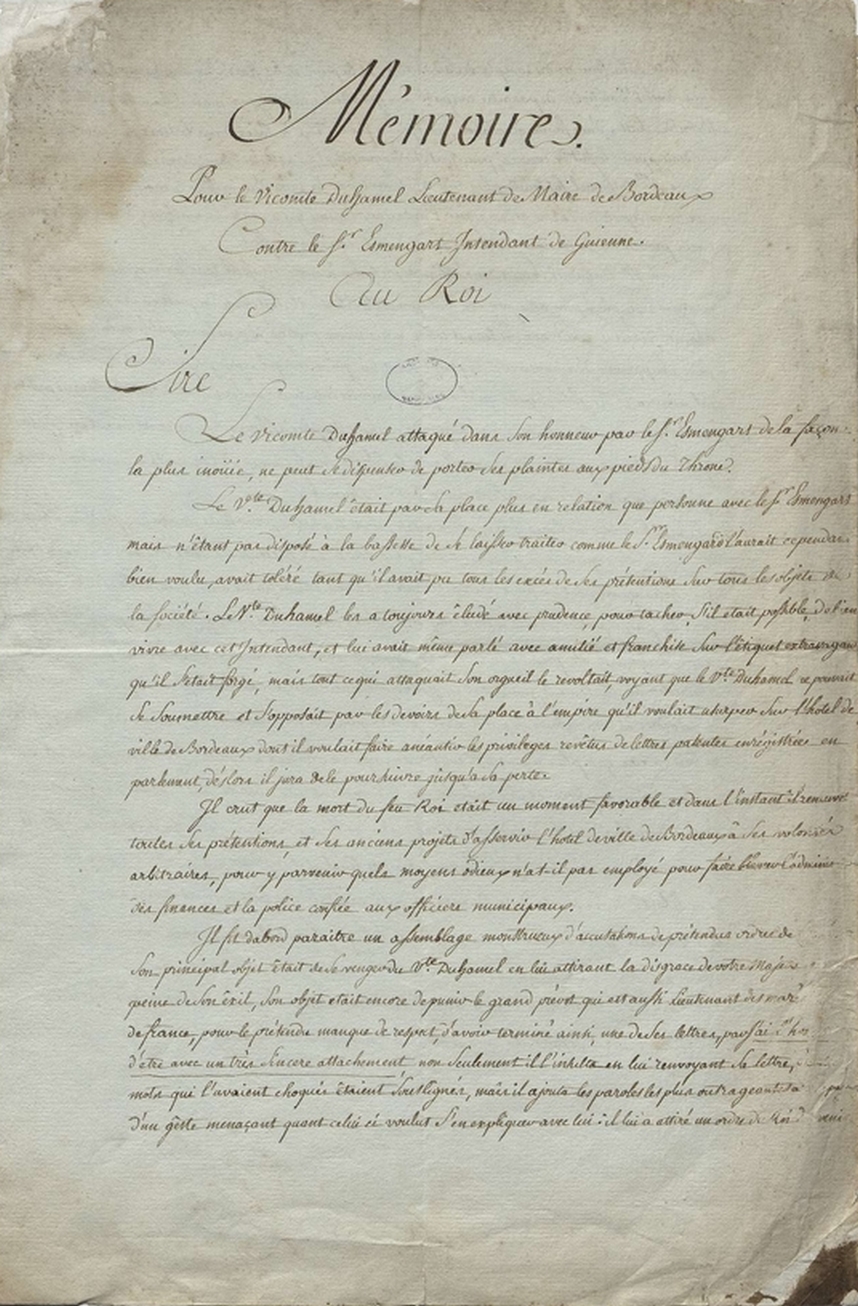 Mémoire.
Pour le Vicomte Duhamel Lieutenant de Maire de Bordeaux
Contre le Sr. Esmengart Intendant de Guienne.
Au Roi
Sire
Le Vicomte Duhamel attaqué dans son honneur par le Sr. Esmengart de la façon
la plus inoüie, ne peut se dispenser de porter ses plaintes aux pieds du Throne.
Le Vte. Duhamel était par sa place plus en relation que personne avec le Sr. Esmengart
mais n'étant pas disposé à la bassesse de se laisser traiter comme le Sr. Esmengart l'aurait cependant
bien voulu, avait toléré tant qu'il avait pu tous les excés de ses prétentions sur tous les objets de
la société. Le Vte. Duhamel les a toujours éludé avec prudence pour tacher, s'il était possible, de bien
vivre avec cet Intendant, et lui avait même parlé avec amitié et franchise sur l'étiquet extravagan
qu'il s'était forgé, mais tout ce qui attaquait son orgueil le revoltait, voyant que le Vte. Duhamel ne pouvait
se soumettre et s'opposait par les devoirs de sa place à l'empire qu'il voulait usurper sur l'hôtel de
ville de Bordeaux dont il voulait faire anéantir les privileges revêtus de lettres patentes enrégistrées en
parlement, dèslors il jura de le poursuivre jusqu'à sa perte.
Il crut que la mort du feu Roi était un moment favorable et dans l'instant il renouvel
toutes ses prétentions, et ses anciens projets d'asservir l'hotel de ville de Bordeaux à ses volontés
arbitraires, pour y parvenir quels moyens odieux n'at-il pas employé pour faire
des finances et la police confiée aux officiers municipaux.
Il fit dabord paraitre un assemblage monstrueux d'accusations de prétendus ordres de
son principal objet était de se venger du Vte. Duhamel en lui attirant la disgrace de votre Majes
peine de son éxil, son objet était encore de punir le grand prévot qui est aussi Lieutenant des mare
de france, pour le prétendu manque de respect, d'avoir terminé ainsi, une de ses lettres, par j'ai l'hon
d'etre avec un très sincere attachement non seulement il l'insulta en lui renvoyant sa lettre,
mots qui l'avaient choqués étaient soulignés, mais il ajouta les paroles les plus outrageantes
d'un gêste menaçant quant celui ci voulut s'en expliquer avec lui : il lui a attiré un ordre du Roi